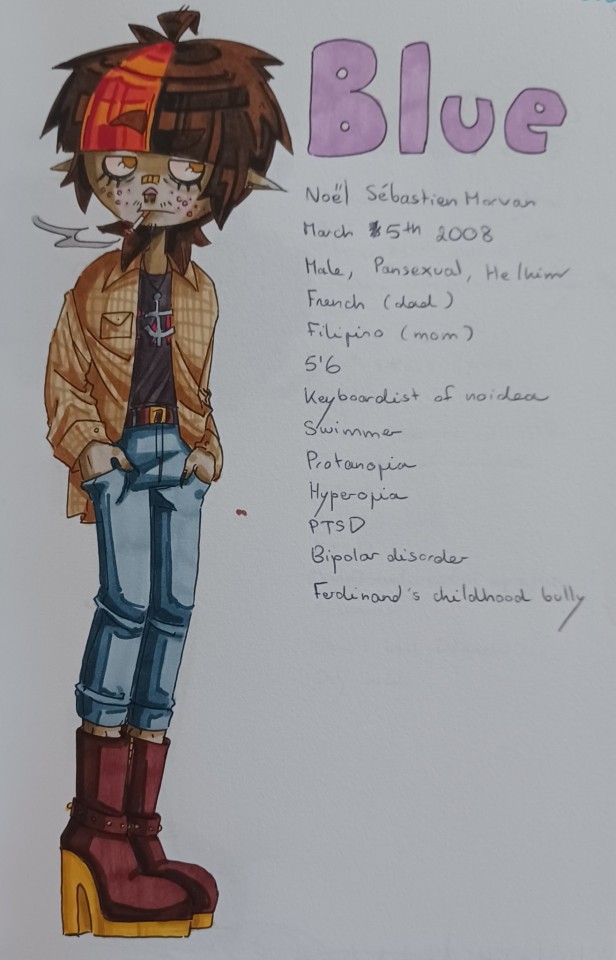 Blue
Noël Sébastien Morvan
March 5th 2008
Male, Pansexual, He/him
French (dad)
Filipino (mom)
5'6
Keyboardist of noidea
Swimmer
Protanopia
Hyperopia
PTSD
Bipolar disorder
Ferdinand's childhood bully